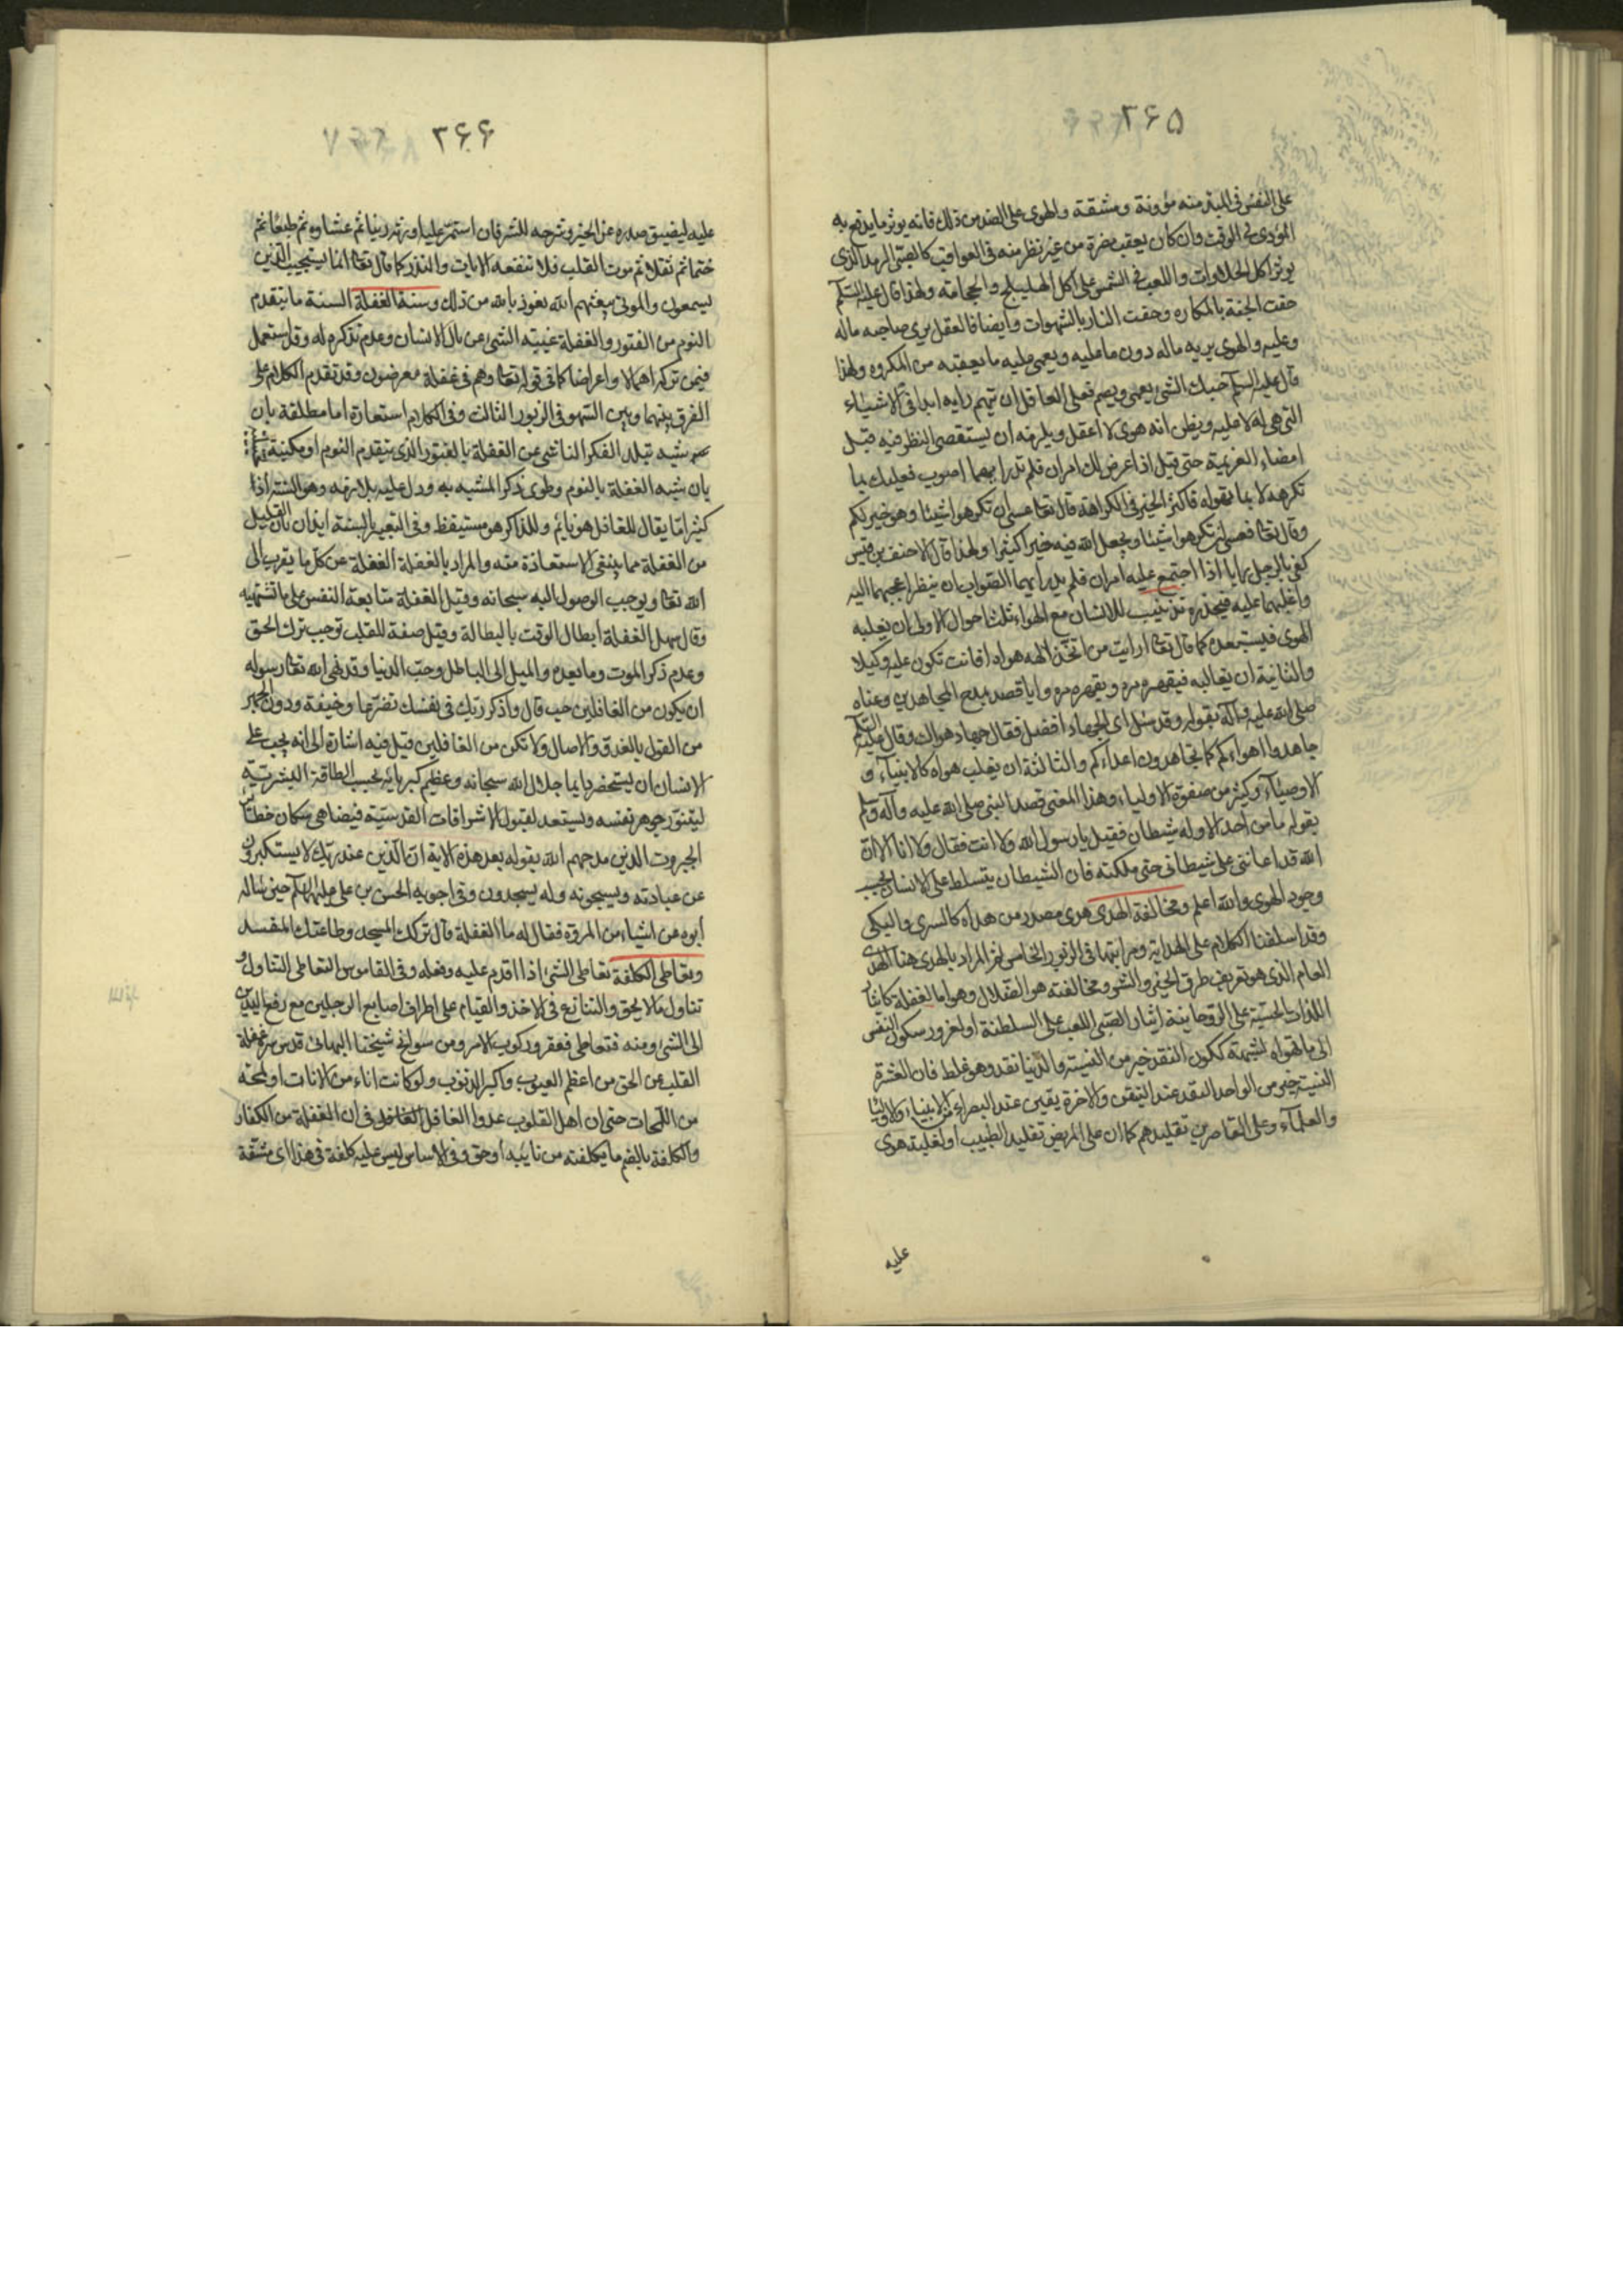 ۳۶۵
على النفس فى المبدء منه مؤونة ومشقة والهوى على الضد من ذلك فانه يوثر ما يدفع به
المؤذى فى الوقت وان كان يعقب مضرة من غير نظر منه فى العواقب كالصبى الرمد الذى
يوثر اكل الحلاوات واللعب فى الشمس على اكل الهليلج والحجامة ولهذا قال عليه السلم
حفت الجنة بالمكاره وحفت النار بالشهوات وايضا فالعقل يرى صاحبه ماله
وعليه والهوى يريه ماله دون ما عليه ويعمى عليه ما يعقبه من المكروه ولهذا
قال عليه السلم حبك الشئ يعمى ويصم فعلى العاقل ان يتهم رايه ابدا فى الاشياء
التى هى له لا عليه ويظن انه هوى لا عقل ويلزمه ان يستقصى النظر فيه قبل
امضاء العزيمة حتى قيل اذا عرض لك امران فلم تدر ايهما اصوب فعليك بما
تكرهه لا بما تهواه فاكثر الخير فى الكراهة قال تعا عسى ان تكرهوا شيئا وهو خير لكم
وقال تعا فعسى ان تكرهوا شيئا ويجعل الله فيه خيرا كثيرا ولهذا قال الاحنف بن قيس
كفى بالرجل رايا اذا اجتمع عليه امران فلم يدر ايهما الصواب ان ينظر اعجبهما اليه
واغلبهما عليه فيحذره تذنيب للانسان مع الهواء ثلث احوال الاولى ان يغلبه
الهوى فيستعبده كما قال تعا ارايت من اتخذ الهه هواه افانت تكون عليه وكيلا
والثانية ان يغالبه فيقهره مره ويقهره مره واياه قصد بمدح المجاهدين وعناه
صلى الله عليه وآله بقوله وقد سئل اى الجهاد افضل فقال جهاد هواك وقال عليه السلم
جاهدوا اهواءكم كما تجاهدون اعداءكم والثالثة ان يغلب هواه كالانبياء و
الاوصياء وكثير من صفوة الاولياء وهذا المعنى قصد النبى صلى الله عليه وآله وسلم
بقوله ما من احد الا وله شيطان فقيل يا رسول الله ولا انت فقال ولا انا الا ان
الله قد اعاننى على شيطانى حتى ملكته فان الشيطان يتسلط على الانسان بحسب
وجود الهوى والله اعلم ومخالفة الهدى هدى مصدر من هداه كالسرى والبكى
وقد اسلفنا الكلام على الهداية ومراتبها فى الزبور الخامس المراد بالهدى هنا الهدى
العام الذى هو تعريف طرق الخير والشر ومخالفته هو الضلال وهو اما لغفلة كايثار
اللذات الحسية على الروحانية ايثار الصبى اللعب على السلطنة او لغرور سكون النفس
الى ما تهواه لشبهة ككون النقد خير من النسية والدنيا نقد وهو غلط فان العشرة
النسية خير من الواحد النقد عند التيقن والاخرة يقين عند البصراء من الانبياء والاولياء
والعلماء وعلى القاصرين تقليدهم كما ان على المريض تقليد الطبيب او لغلبة هوى
عليه
۳۶۶
عليه ليضيق صدره عن الخير وشرحه للشر فان استمر عليه اورثه رينا ثم غشاوه ثم طبعا ثم
ختما ثم ثقلا ثم موت القلب فلا تنفعه الايات والنذر كما قال تعا انما يستجيب الذين
يسمعون والموتى يبعثهم الله نعوذ بالله من ذلك وسنة الغفلة السنة ما يتقدم
النوم من الفتور والغفلة غيبة الشئ عن بال الانسان وعدم تذكره له وقد استعمل
فيمن تركه اهمالا واعراضا كما فى قوله تعا وهم فى غفلة معرضون وقد تقدم الكلام على
الفرق بينهما وبين السهو فى الزبور الثالث وفى الكلام استعارة اما مطلقة بان
شبه تبلد الفكر الناشى عن الغفلة بالفتور الذى يتقدم النوم او مكنية
بان شبه الغفلة بالنوم وطوى ذكر المشبه به ودل عليه بلازمه وهو السنة اذ
كثيرا ما يقال للغافل هو نائم وللذاكر هو مستيقظ وفى التعبير بالسنة ايذان بان القليل
من الغفلة مما ينبغى الاستعاذة منه والمراد بالغفلة الغفلة عن كل ما يقرب الى
الله تعا ويوجب الوصول اليه سبحانه وقيل الغفلة متابعة النفس على ما تشتهيه
وقال سهل الغفلة ابطال الوقت بالبطالة وقيل صفة للقلب توجب ترك الحق
وعدم ذكر الموت وما بعده والميل الى الباطل وحب الدنيا وقد نهى الله تعا رسوله
ان يكون من الغافلين حيث قال واذكر ربك فى نفسك تضرعا وخيفة ودون الجهر
من القول بالغدو والاصال ولا تكن من الغافلين قيل فيه اشارة الى انه يجب على
الانسان ان يستحضر دايما جلال الله سبحانه وعظيم كبريائه بحسب الطاقة البشرية
ليتنور جوهر نفسه ويستعد لقبول الاشراقات القدسية فيضاهى سكان حظاير
الجبروت الذين مدحهم الله بقوله بعد هذه الاية ان الذين عند ربك لا يستكبرون
عن عبادته ويسبحونه وله يسجدون وفى اجوبة الحسن بن على عليهما السلم حين سأله
ابوه عن اشياء من المروة فقال له ما الغفلة قال تركك المسجد وطاعتك المفسد
وتعاطى الكلفة تعاطى الشئ اذا اقدم عليه وفعله وفى القاموس التعاطى التناول و
تناول ما لا يحق والتنازع فى الاخذ والقيام على اطراف اصابع الرجلين مع رفع اليدين
الى الشئ ومنه فتعاطى فعقر وركوب الامر ومن سوانح شيخنا البهائى قدس سره غفلة
القلب عن الحق من اعظم العيوب واكبر الذنوب ولو كانت اناء من الانات او لمحة
من اللمحات حتى ان اهل القلوب عدوا الغافل فى ان الغفلة من الكفار
والكلفة بالضم ما يكلفته من نائبة او حق وفى الاساس ليس عليه كلفة فى هذا اى مشقة